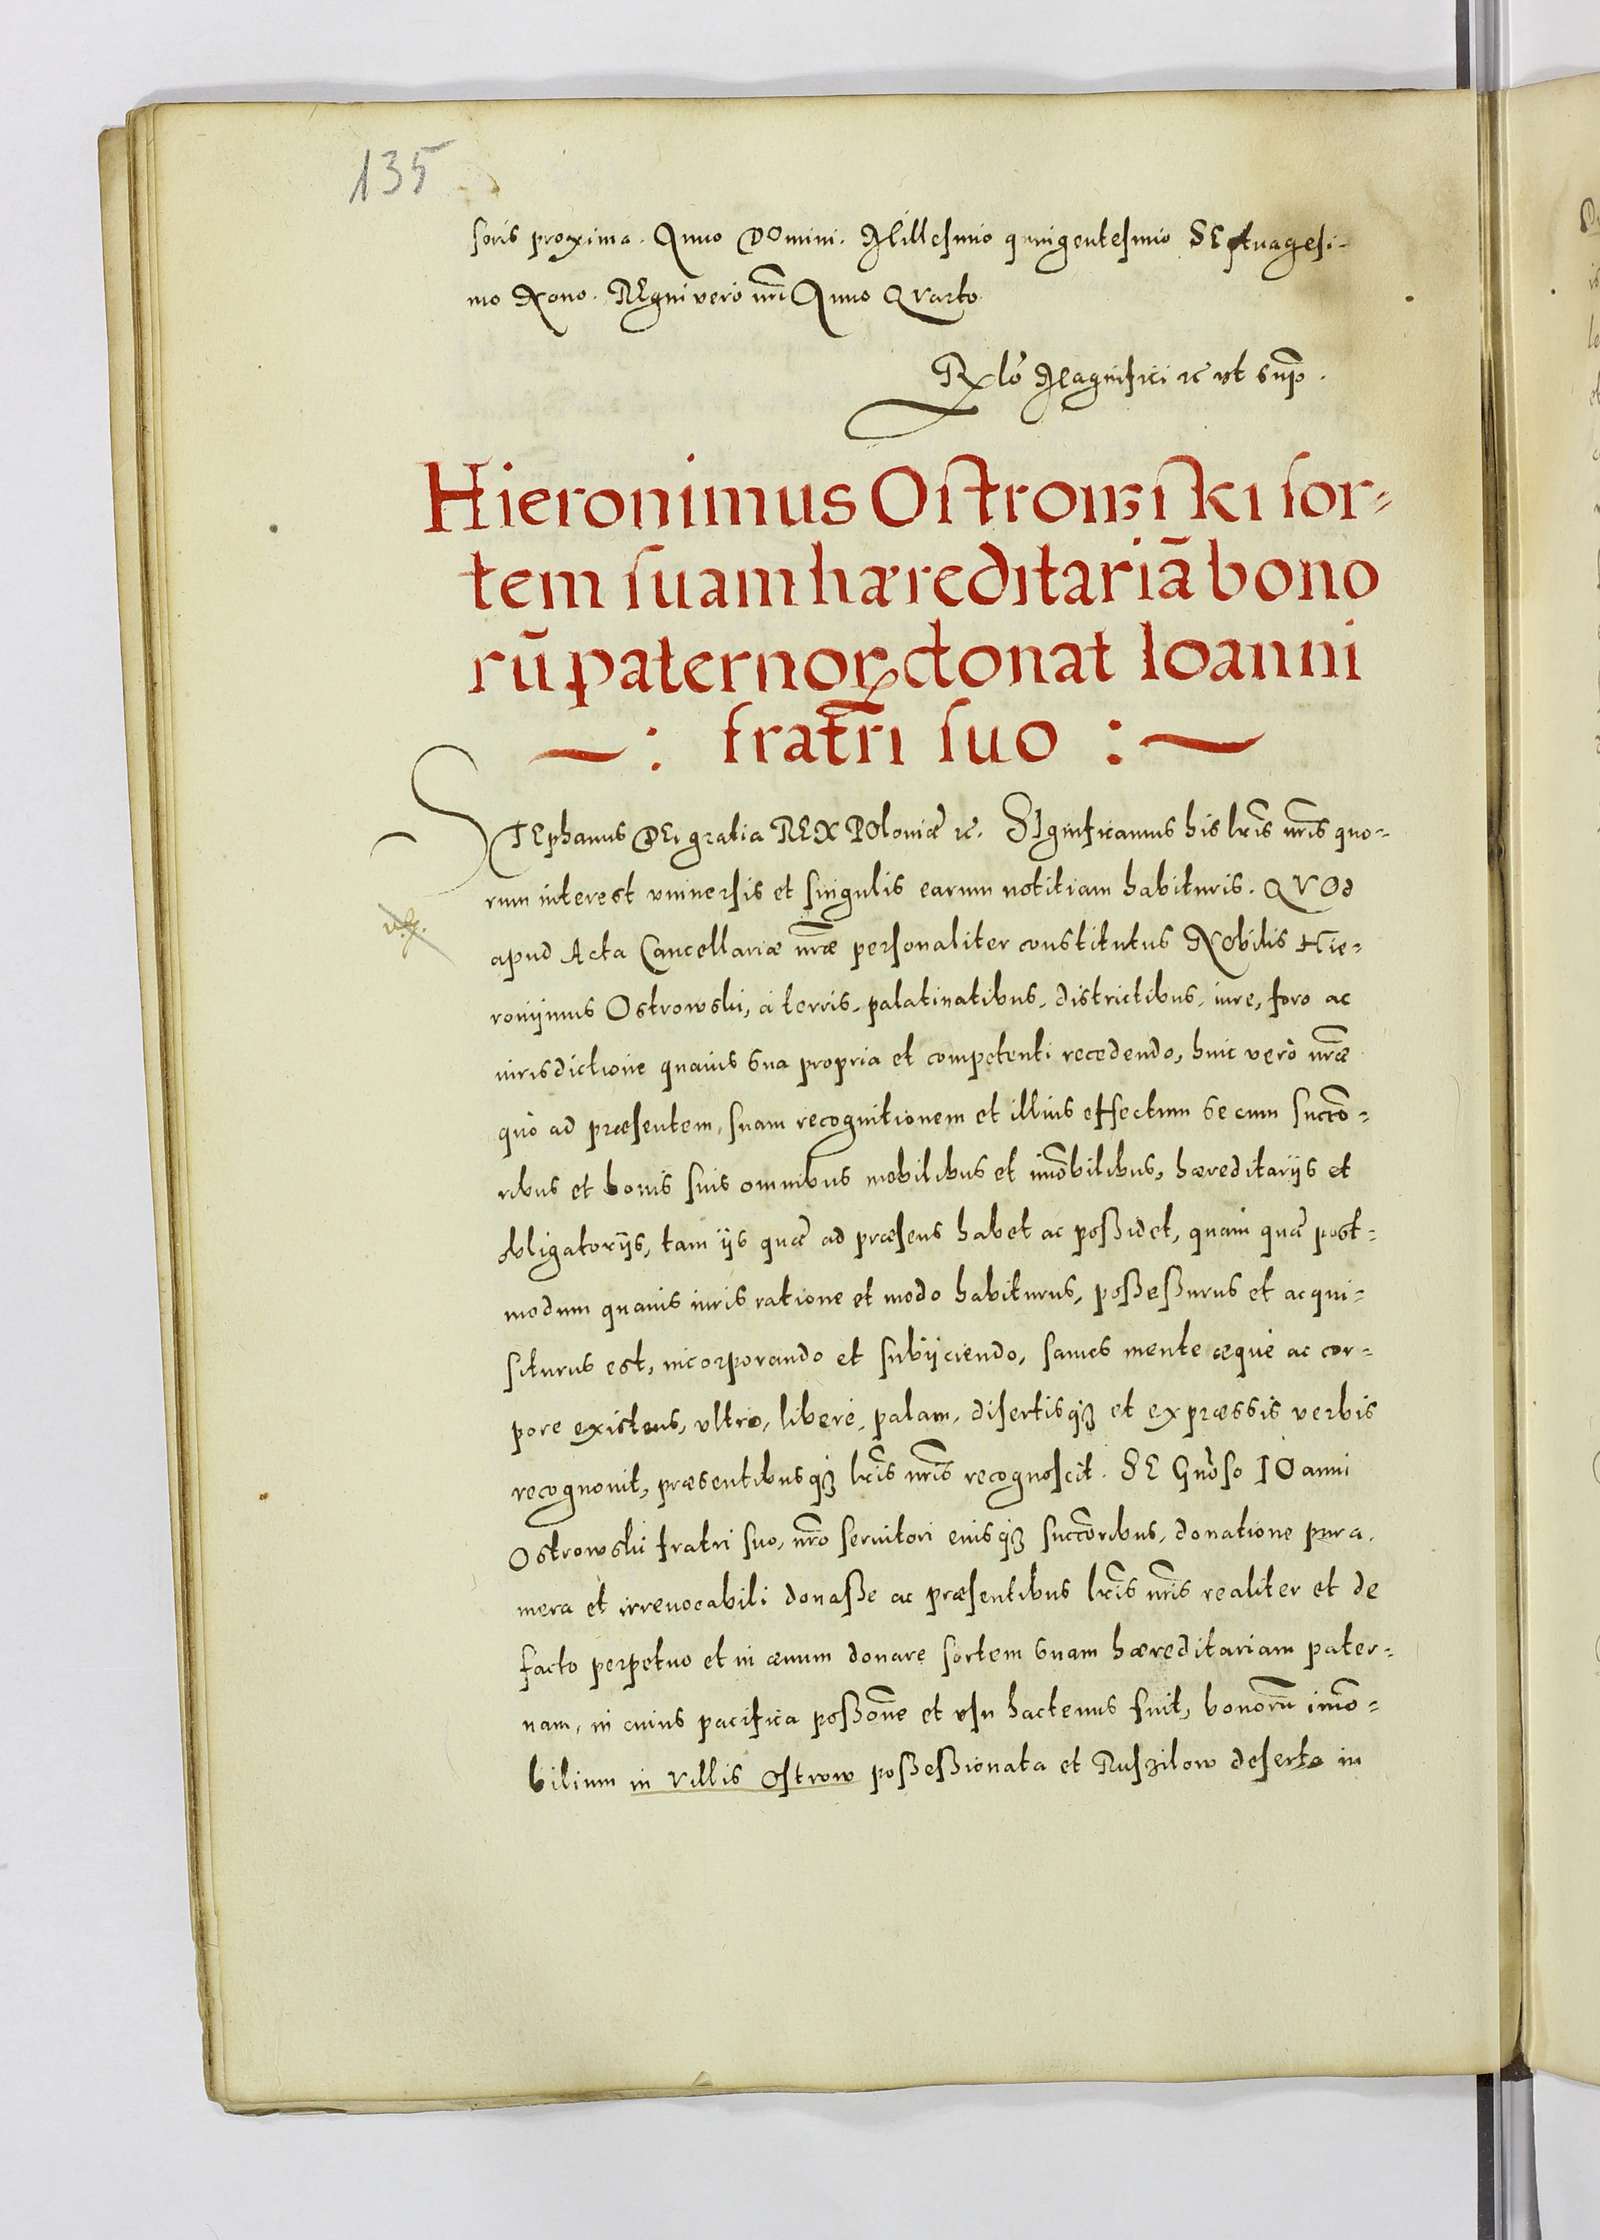 135
soris proxima. Anno DOmini. Millesimo quingentesimo SEptuagesi-
mo Nono. REgni vero nr̄i Anno Qvarto.
Rx lō Magnifici rc vt sup̄.
Hieronimus Ostrowski sor-
tem suam hæreditariā bono
rū paternoꝝ donat Ioanni
~: fratri suo :~
STEphanus DEi gratia REX POloniæ rc. SIgnificamus his lr̄is nr̄is quo-
rum interest vniuersis et singulis earum notitiam habituris. QVOd
apud Acta Cancellariæ nr̄æ personaliter constitutus NObilis Hie-
ronijmus Ostrowski, à terris, palatinatibus, districtibus, iure, foro ac
iurisdictione quauis sua propria et competenti recedendo, huic verò nr̄æ
quò ad præsentem, suam recognitionem et illius effectum se cum succō-
ribus et bonis suis omnibus mobilibus et im̄obilibus, hæreditarijs et
obligatorijs, tam ijs quæ ad præsens habet ac possidet, quàm quæ post-
modum quauis iuris ratione et modo habiturus, possessurus et acqui-
siturus est, incorporando et subijciendo, sanus mente æquè ac cor-
pore existens, vltro, liberè, palam, disertisqꝫ et expræssis verbis
recognouit, præsentibusqꝫ lr̄is nr̄is recognoscit. SE Gn̄oso IOanni
Ostrowski fratri suo, nr̄o seruitori eiusqꝫ succōribus, donatione pura,
mera et irreuocabili donasse ac præsentibus lr̄is nr̄is realiter et de
facto perpetuo et in æuum donare sortem suam hæreditariam pater-
nam, in cuius pacifica possōne et vsu hactenus fuit, bonorū im̄o-
bilium in villis Ostrow possessionata et Ruszilow deserta in